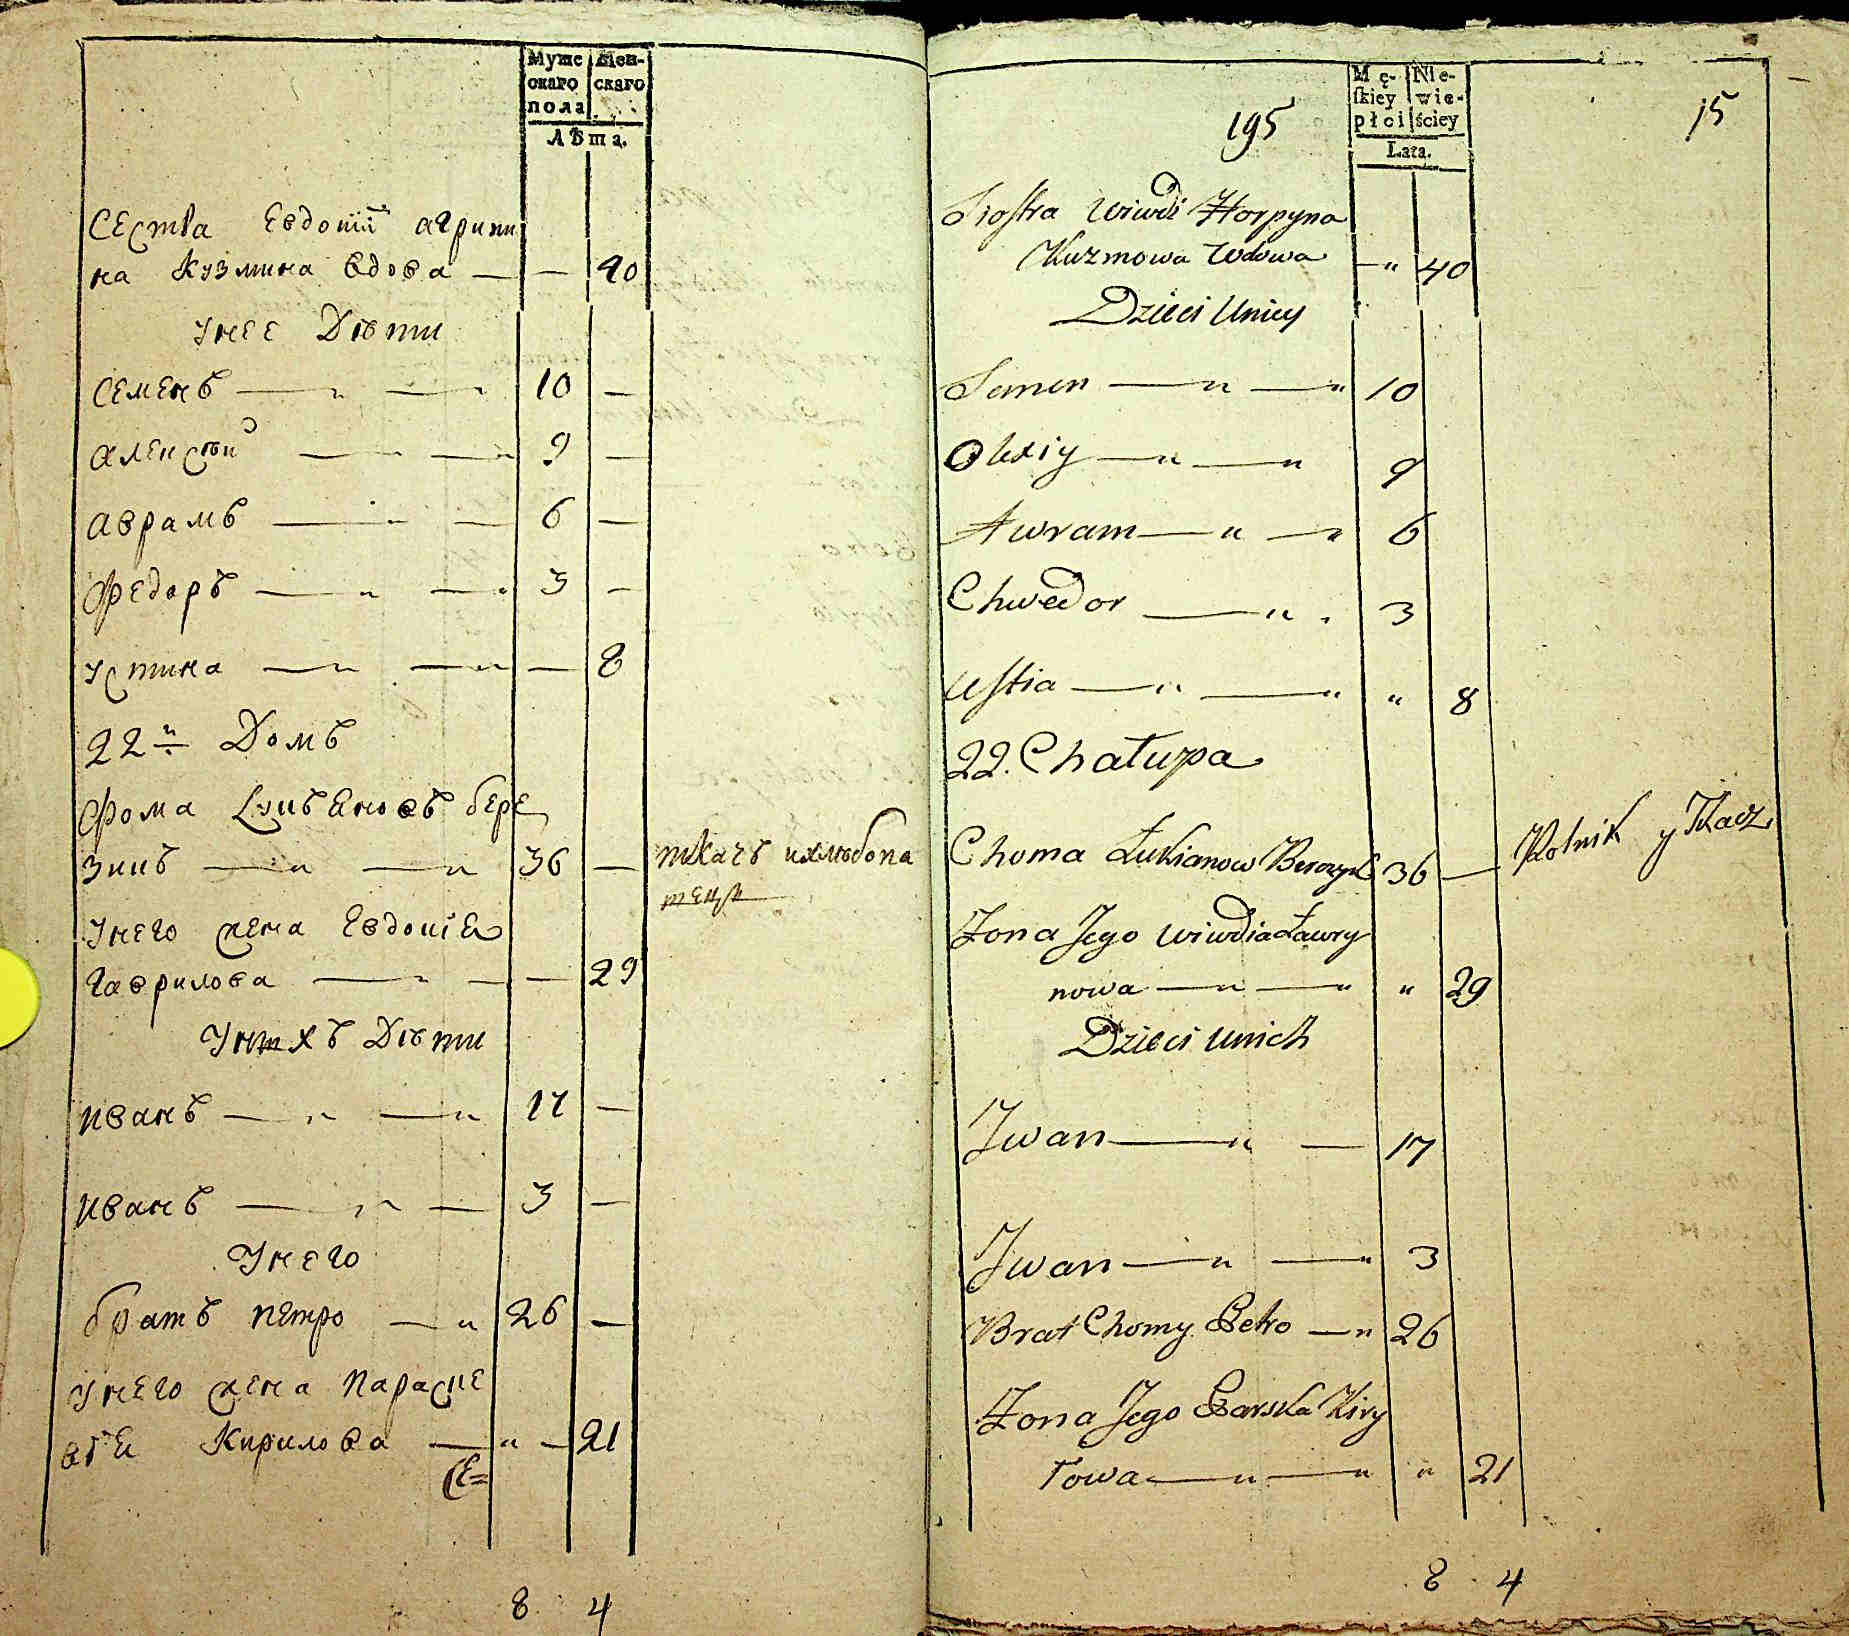 Мужс Жен-
скаго скаго
пола
Лѣта.
Сестра Евдокіи агрипи
на Кузмина вдова — — 40
Унее Дѣти
Семенъ — „ — „ 10 —
алексѣй — „ — „ 9 —
аврамъ — „ — 6 —
Федоръ — „ — „ 3 —
устина — „ — „ — 8
22й Домъ
Фома Лукъяновъ бере
зикъ — „ — „ 36 — ткачъ ихлѣбопа
шецъ
Унего жена Евдокія
Гаврилова — „ — — 29
Унихъ Дѣти
Иванъ — „ — „ 17 —
Иванъ — „ — 3 —
Унего
братъ петро — „ 26 —
Унего жена параске
вія Кирилова — „ — 21
Се=
8 4
195
15
Mę- Nie-
ſkiey wie-
płci ściey
Lata.
Siostra Wiwdi Horpyna
Kuzmowa Wdowa — „ 40
Dzieci Uniey
Semen — „ — „ 10
Olexiy — „ — „ 9
Awram — „ — „ 6
Chwedor — „ „ 3
Ustia — „ — „ „ 8
22. Chałupa
Choma Łukianow Berezyk 36 — Rolnik y Tkacz
Żona Jego Wiwdia Ławry
nowa — „ — „ „ 29
Dzieci Unich
Jwan — „ — 17
Jwan — „ — „ 3
Brat Chomy Petro — „ 26
Żona Jego Parska Kiry
łowa — „ — „ „ 21
8 4